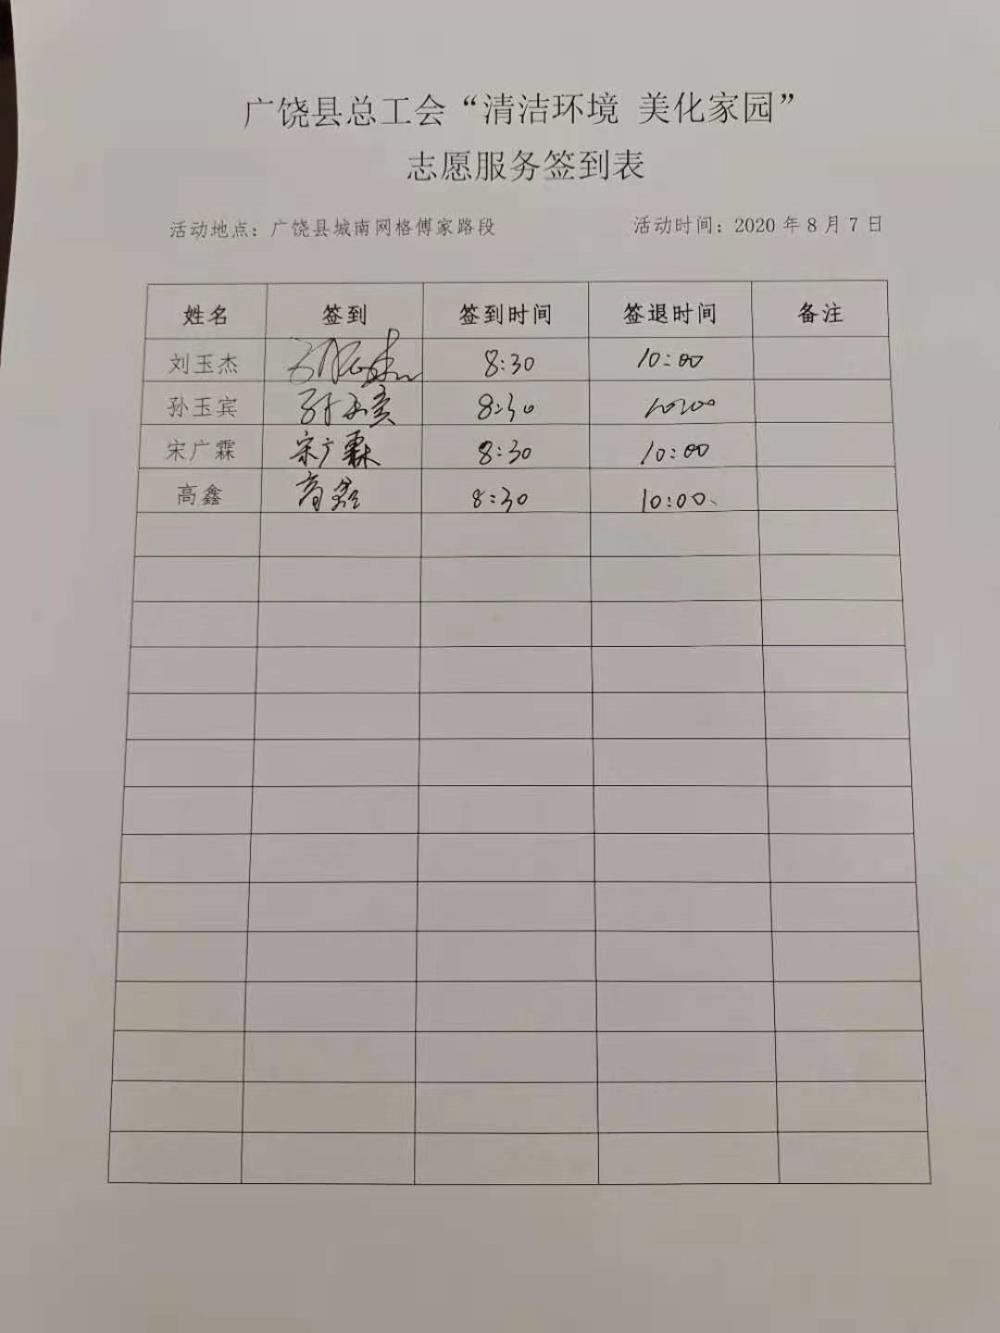 广饶县总工会“清洁环境 美化家园”
志愿服务签到表
活动地点：广饶县城南网格傅家路段 活动时间：2020 年 8 月 7 日
姓名 签到 签到时间 签退时间 备注
刘玉杰 刘玉杰 8:30 10:00
孙玉宾 孙玉宾 8:30 10:00
宋广霖 宋广霖 8:30 10:00
高鑫 高鑫 8:30 10:00、